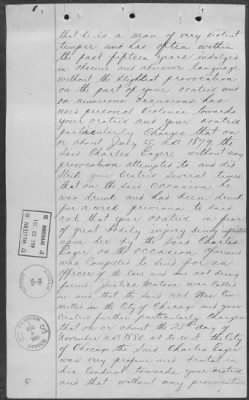 that he is a man of very violent
temper and has often within
the past fifteen years indulged
in obscene and abusive language
without the slightest provocation
on the part of your oratrix and
on numerous occasions has
used personal violence towards
your oratrix and your oratrix
particularly charges that on
or about July 15, A.D. 1879, the
said Charles Eager without any
provocation attempted to and did
strike your oratrix several times
that on the said occasion he
was drunk and had been drunk
for a week previous to said
act that your oratrix in fear
of great bodily injury being
upon her by the said Charles
Eager on the occasion
was compelled to send for an
officer of the law and one not being
found Justice Matson was called
in and that the said act was
in the City of Chicago and your
oratrix further particularly charges
that on or about the 25th day of
November A.D. 1880 at to wit the City
of Chicago the said Charles Eager
was very profane and brutal in
his conduct towards your oratrix
and that without any provocation
5